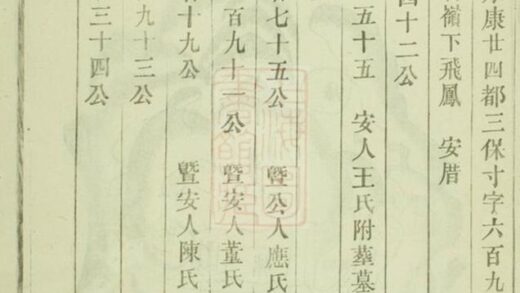 康廿四都三保寸字六百九
嶺下飛鳳 安厝
四十二公
五十五 安人王氏附葬墓
七十五公 暨公人應氏
百九十一公 暨安人董氏
十九公 暨安人陳氏
九十三公
三十四公